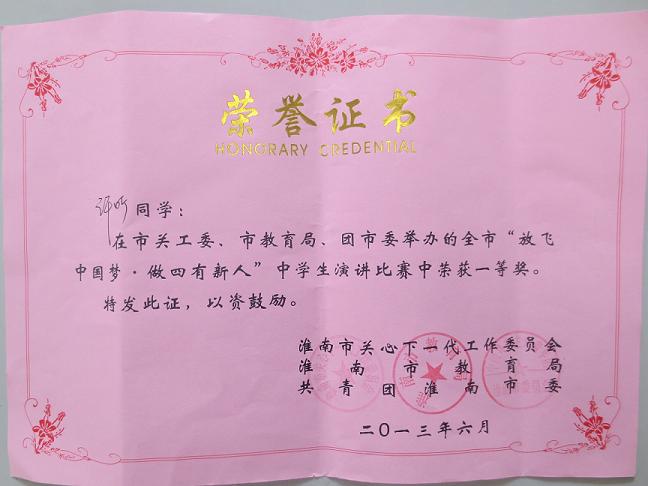 荣誉证书
HONORARY CREDENTIAL
同学：
在市关工委、市教育局、团市委举办的全市“放飞
中国梦·做四有新人”中学生演讲比赛中荣获一等奖。
特发此证，以资鼓励。
淮南市关心下一代工作委员会
淮南市教育局
共青团淮南市委
二〇一三年六月